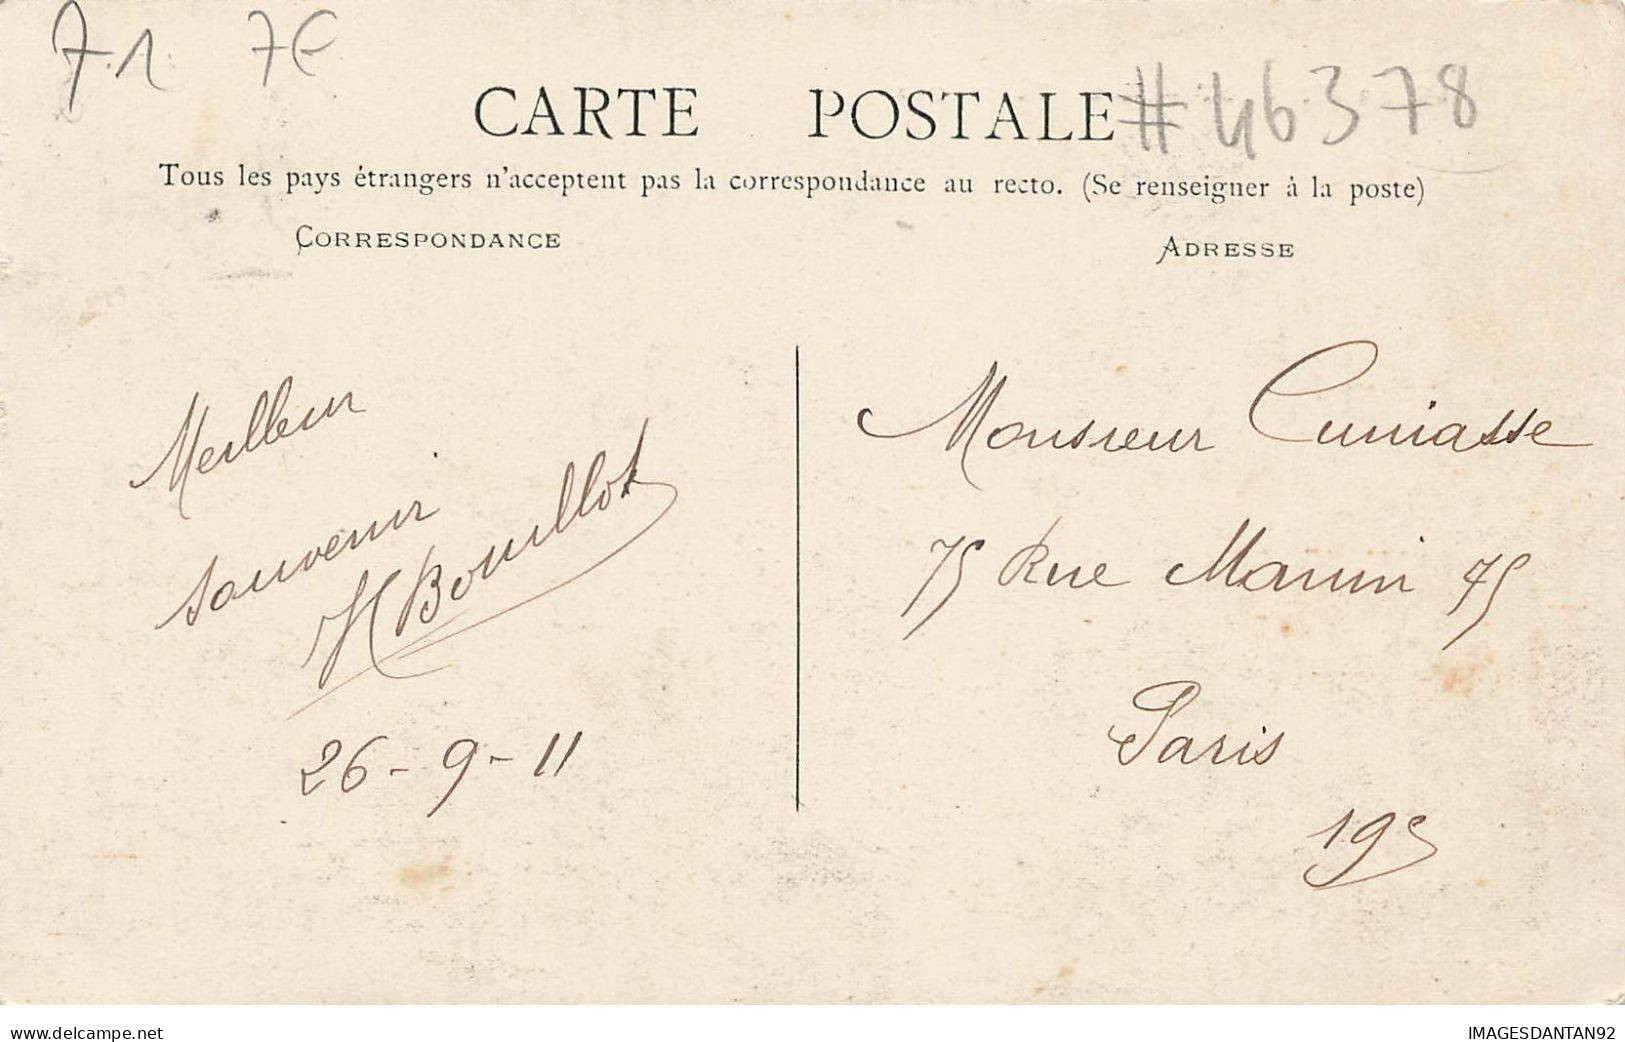 71 7€
CARTE POSTALE #46378
Tous les pays étrangers n'acceptent pas la correspondance au recto. (Se renseigner à la poste)
CORRESPONDANCE
ADRESSE
Meilleur
souvenir
HBouillot
26-9-11
Monsieur Cuniasse
75 Rue Manin 75
Paris
19e
www.delcampe.net
IMAGESDANTAN92